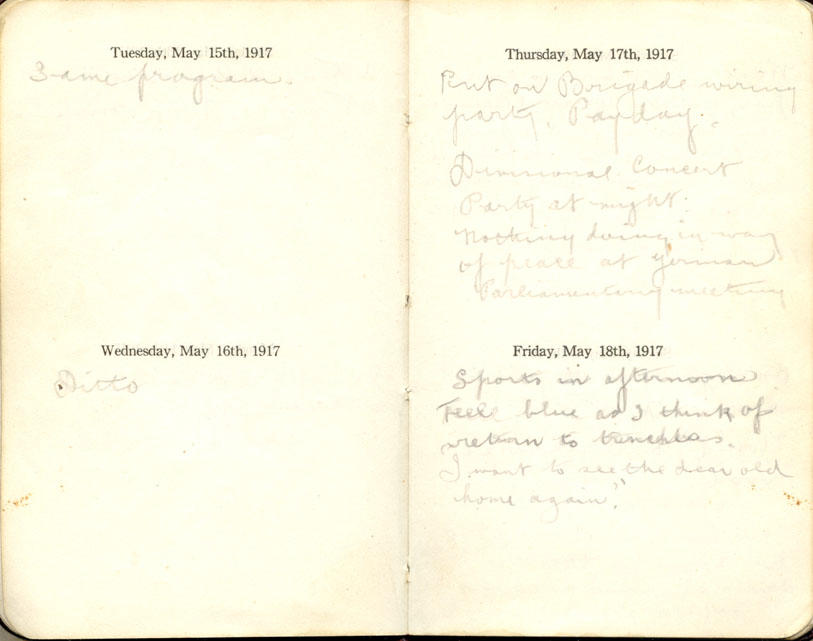 Tuesday, May 15th, 1917
Same program.
Wednesday, May 16th, 1917
Ditto
Thursday, May 17th, 1917
Put on Brigade wiring
party. Payday.
Divisional Concert
Party at night.
Nothing doing in way
of peace at German
Parliamentary meeting
Friday, May 18th, 1917
Sports in afternoon
Feel blue as I think of
return to trenches.
I want to see the dear old
home again".